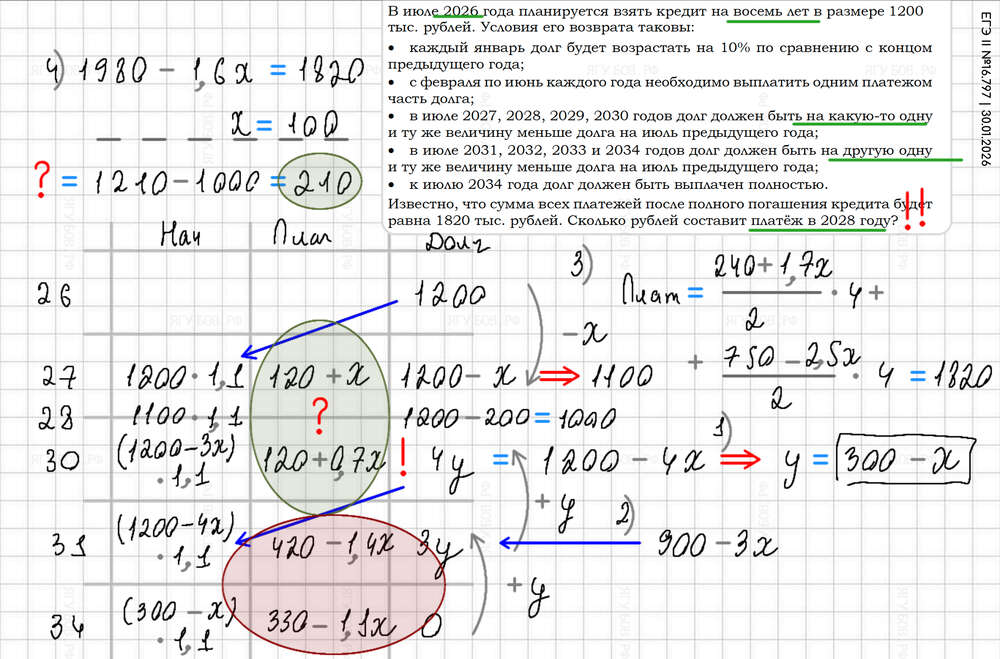 В июле 2026 года планируется взять кредит на восемь лет в размере 1200
тыс. рублей. Условия его возврата таковы:
• каждый январь долг будет возрастать на 10% по сравнению с концом
предыдущего года;
• с февраля по июнь каждого года необходимо выплатить одним платежом
часть долга;
• в июле 2027, 2028, 2029, 2030 годов долг должен быть на какую-то одну
и ту же величину меньше долга на июль предыдущего года;
• в июле 2031, 2032, 2033 и 2034 годов долг должен быть на другую одну
и ту же величину меньше долга на июль предыдущего года;
• к июлю 2034 года долг должен быть выплачен полностью.
Известно, что сумма всех платежей после полного погашения кредита будет
равна 1820 тыс. рублей. Сколько рублей составит платёж в 2028 году?
!!
ЕГЭ II №16.797 | 30.01.2026
4) 1980 – 1,6x = 1820
x = 100
? = 1210 – 1000 = 210
Нач Плат Долг
26 1200
– x
27 1200 · 1,1 120 + x 1200 – x ⇒ 1100
28 1100 · 1,1 ? 1200 – 200 = 1000
30 (1200 – 3x) · 1,1 120 + 0,7x ! 4y = 1200 – 4x 1) ⇒ y = 300 – x
+ y
31 (1200 – 4x) · 1,1 420 – 1,4x 3y 2) 900 – 3x
+ y
34 (300 – x) · 1,1 330 – 1,1x 0
3) Плат = (240 + 1,7x)/2 · 4 +
+ (750 – 2,5x)/2 · 4 = 1820